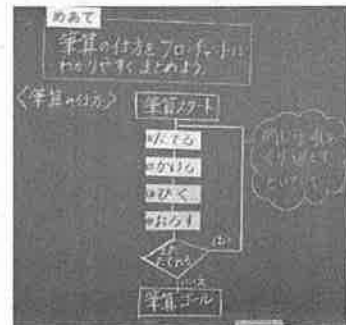 めあて
筆算の仕方をフローチャートに
わかりやすくまとめよう。
〈筆算の仕方〉
筆算スタート
たてる
かける
ひく
おろす
まだ
たてれる
はい
いいえ
筆算ゴール